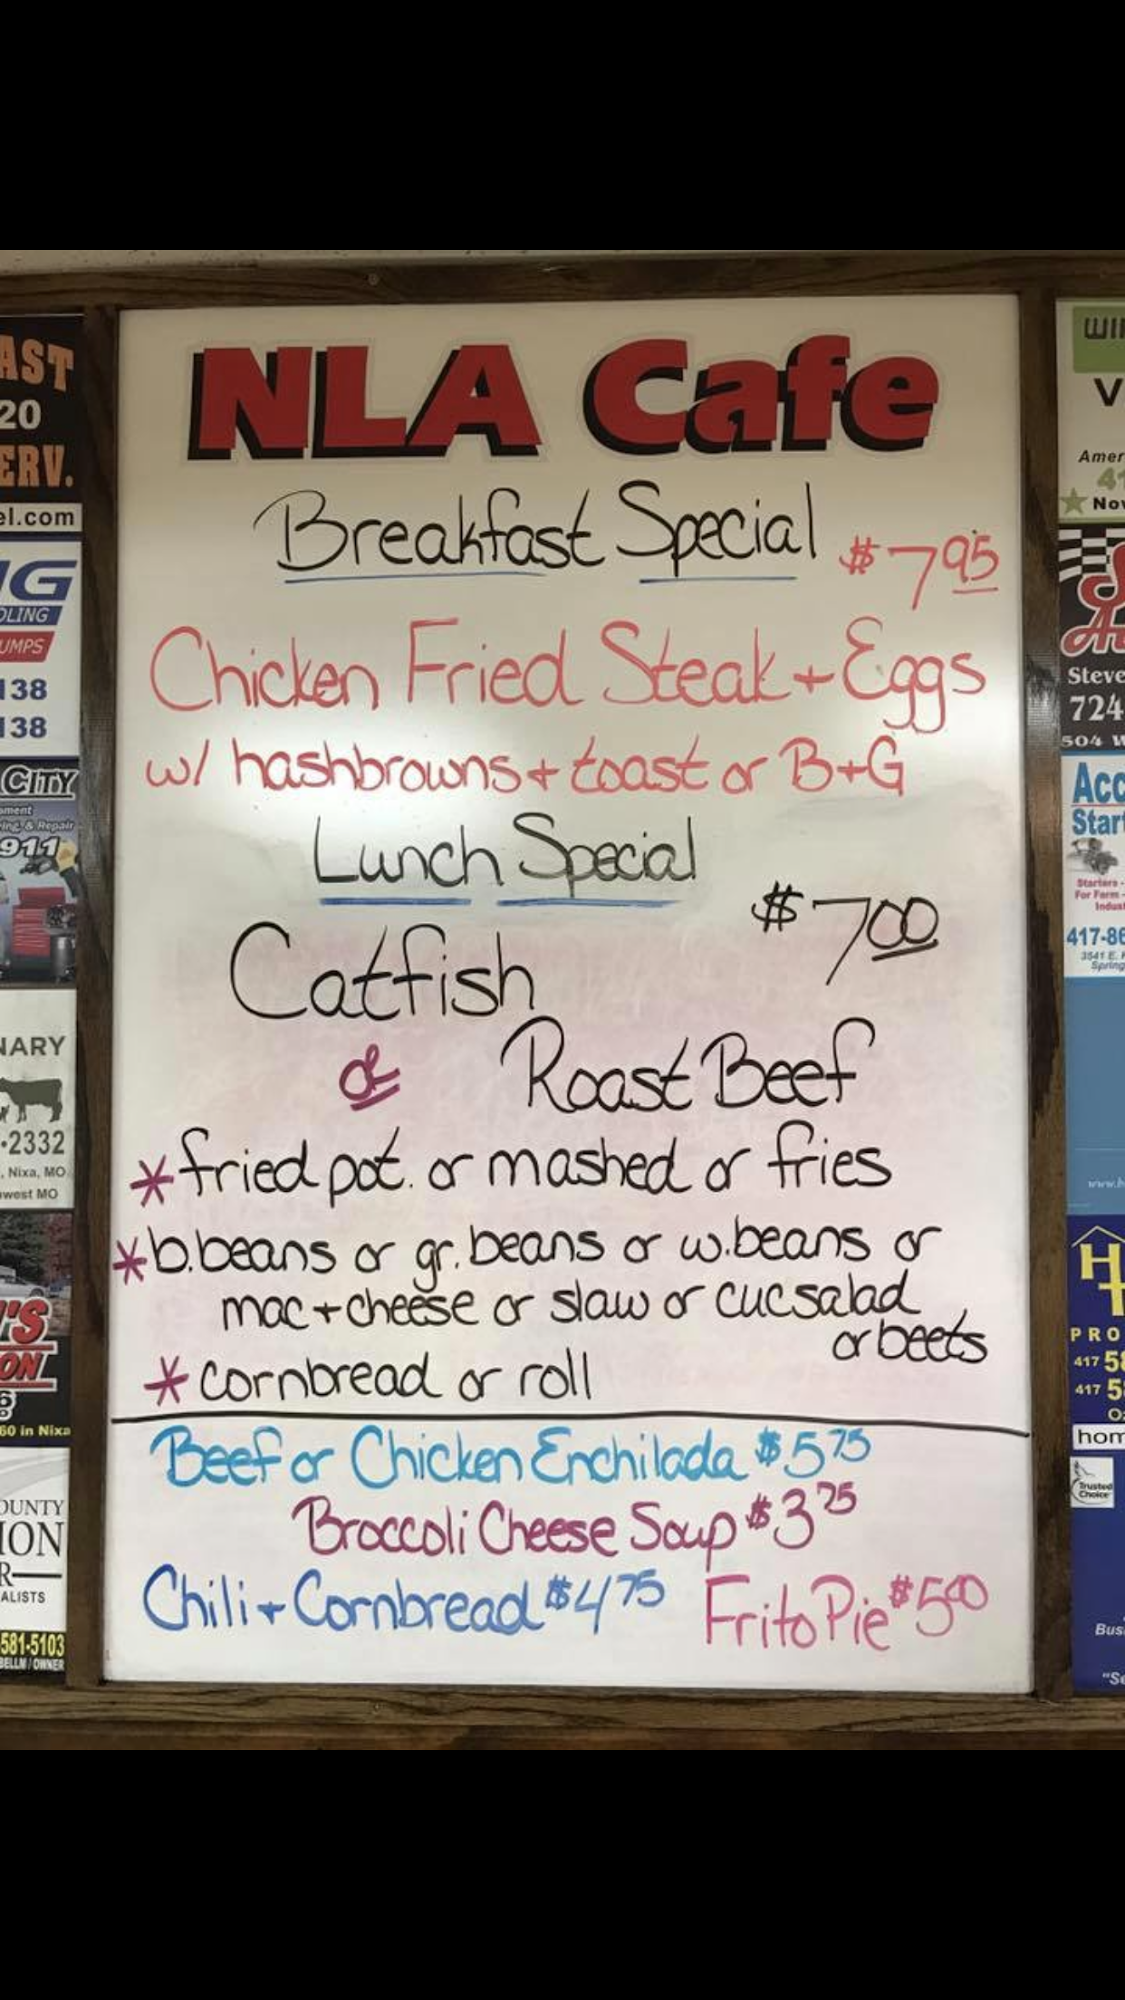 NLA Cafe
Breakfast Special $7.95
Chicken Fried Steak + Eggs
w/ hashbrowns + toast or B+G
Lunch Special
$7.00
Catfish
or
Roast Beef
* fried pot. or mashed or fries
* b.beans or gr. beans or w.beans or
mac + cheese or slaw or cuc salad
or beets
* cornbread or roll
Beef or Chicken Enchilada $5.75
Broccoli Cheese Soup $3.25
Chili + Cornbread $4.75
Frito Pie $5.00
AST
20
ERV.
el.com
OLING
UMPS
138
138
CITY
ing & Repair
911
NARY
-2332
, Nixa, MO
west MO
'S
ON
60 in Nixa
OUNTY
ION
R
ALISTS
581-5103
BELLM / OWNER
WI
V
Amer
Nov
Steve
724
504 W
Acc
Start
Starters -
For Farm -
Indust
417-86
3541 E.
Spring
www.h
PRO
417 58
417 5
hom
Trusted
Choice
Bus
"Se